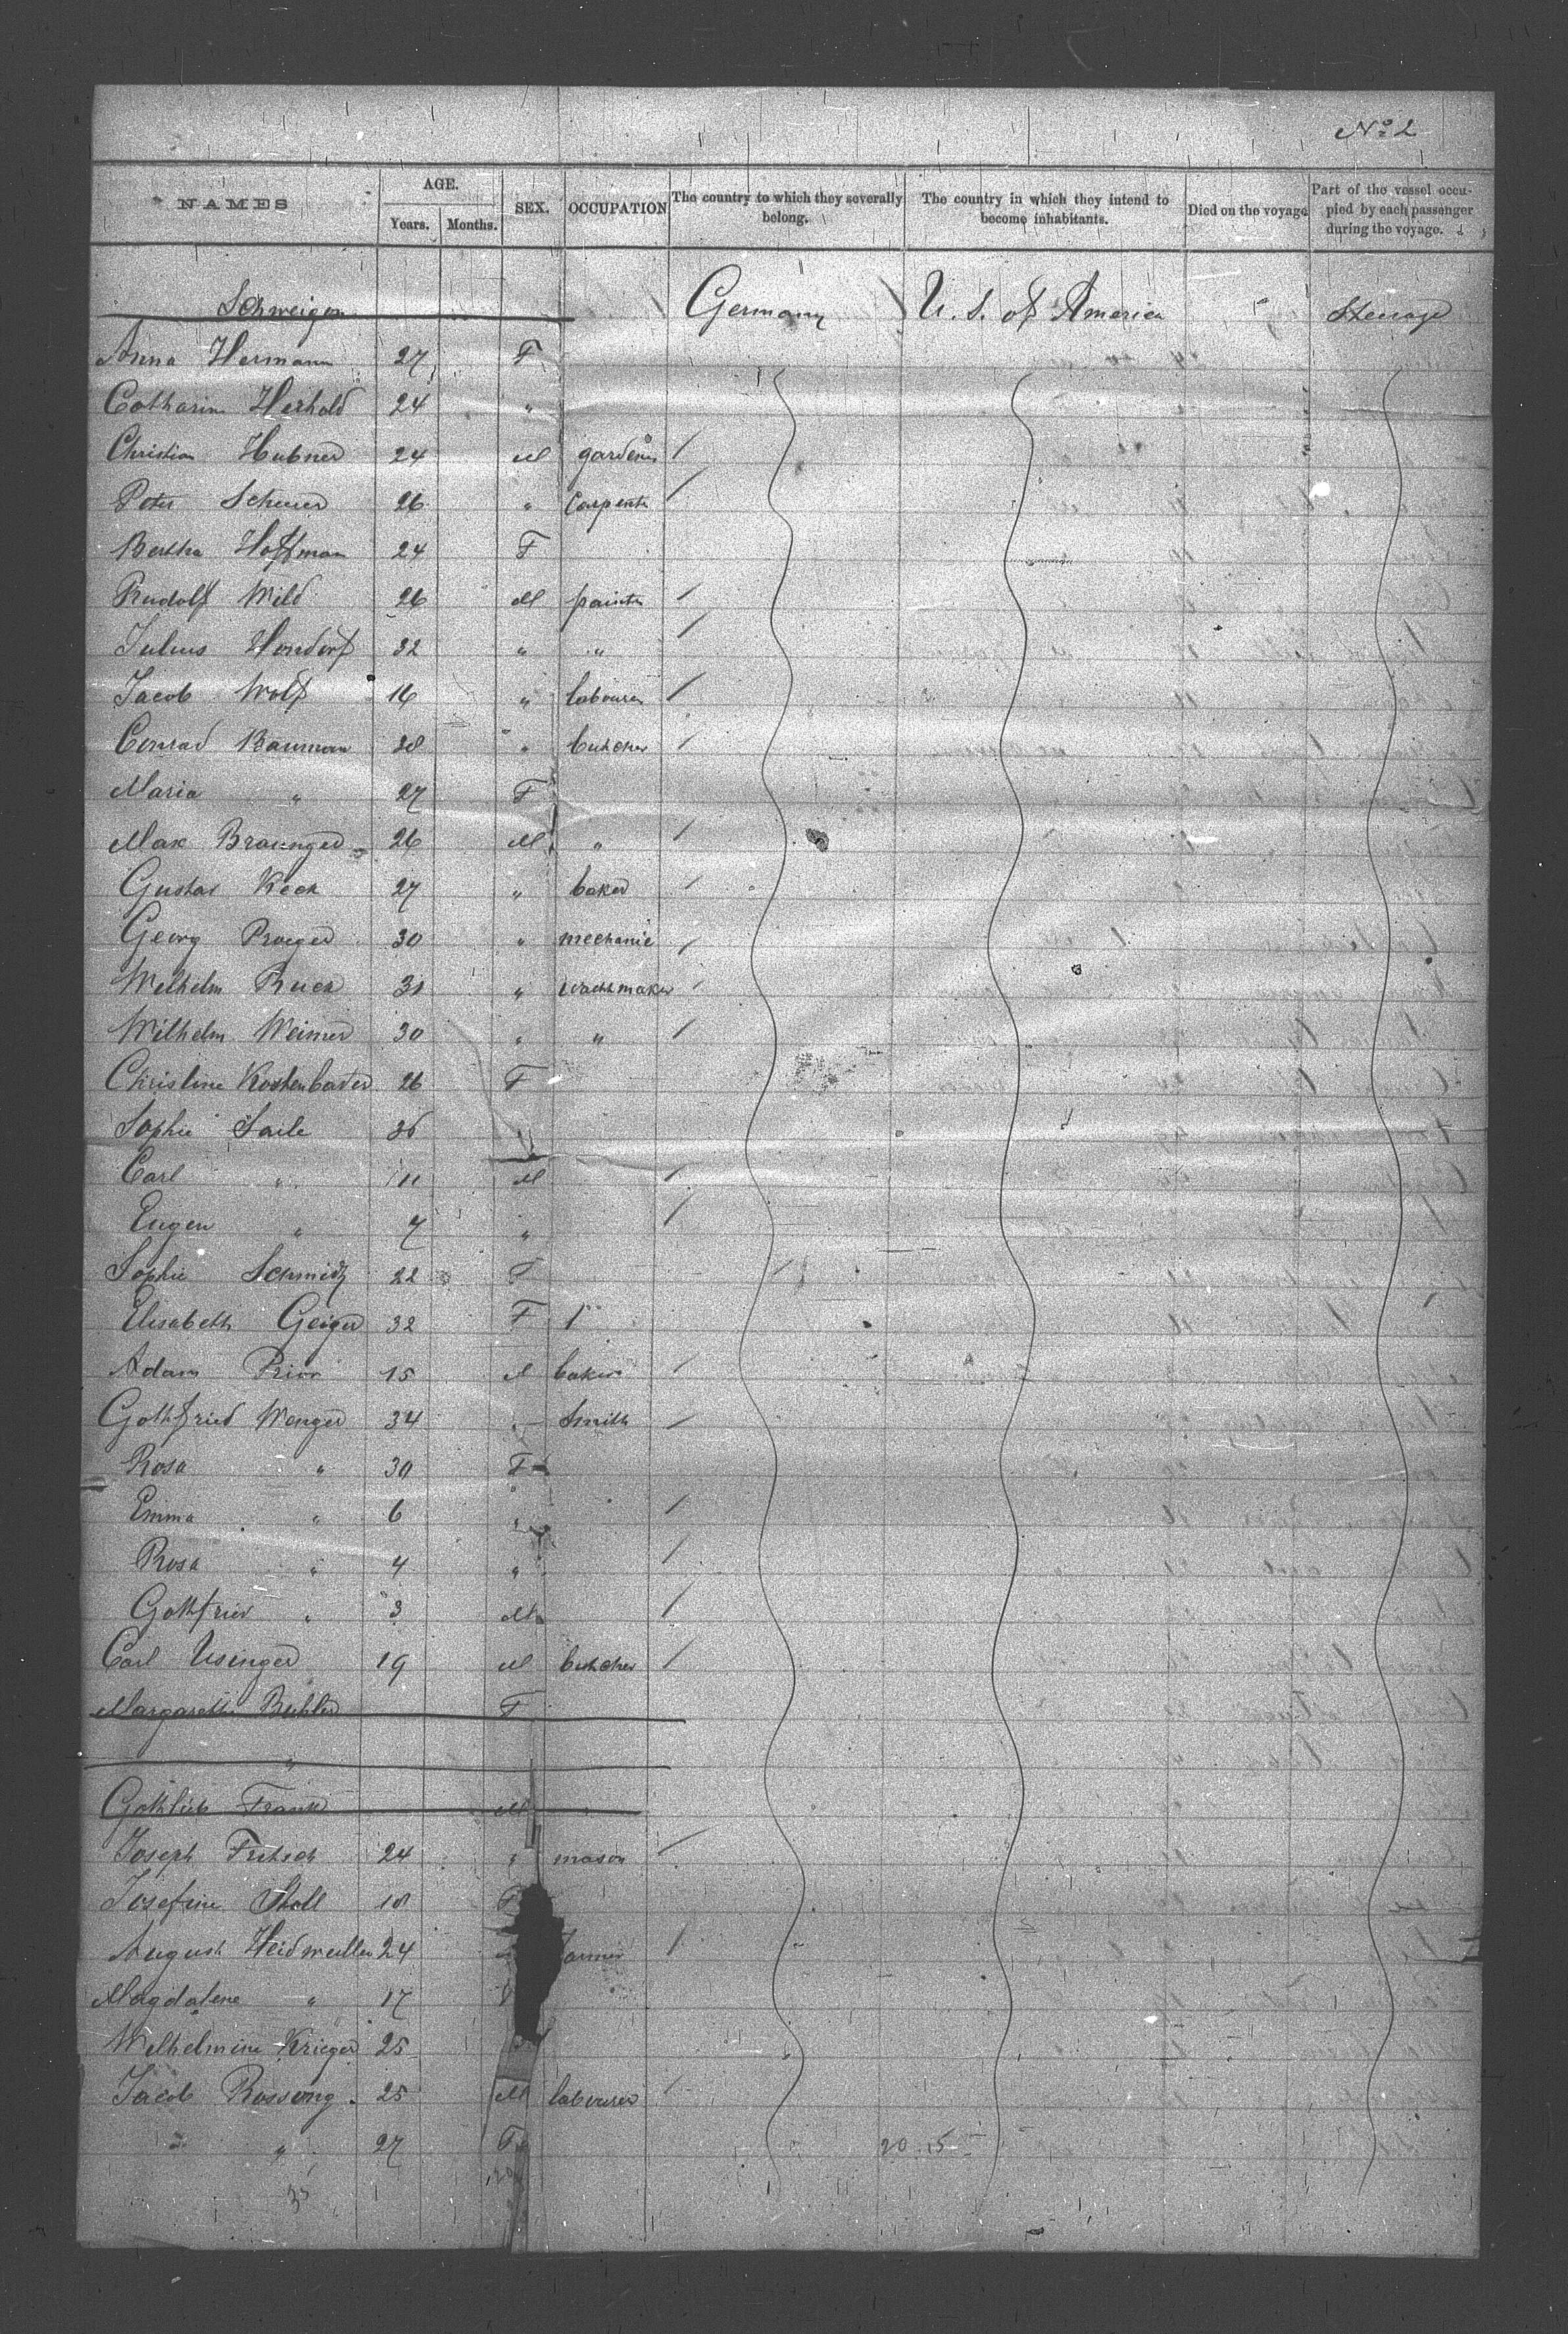 No 2
NAMES AGE. Years. Months. SEX. OCCUPATION The country to which they severally belong. The country in which they intend to become inhabitants. Died on the voyage Part of the vessel occupied by each passenger during the voyage.
Germany U. S. of America Steerage
Anna Hermann 27 F
Catharin Herhold 24 "
Christian Hubner 24 M gardener
Peter Scheuer 26 " Carpenter
Bertha Hoffman 24 F
Rudolf Wild 26 M painter
Julius Hondorf 32 " "
Jacob Wolf 16 " labourer
Conrad Bauman 28 " butcher
Maria " 27 F
Max Braunger 26 M "
Gustav Keck 27 " baker
Georg Praeger 30 " mechanic
Wilhelm Ruck 31 " watchmaker
Wilhelm Weimer 30 " "
Christine Kostenbader 26 F
Sophie Saile 36 "
Carl " 11 M
Eugen " 7 "
Sophie Schmidt 22 F
Elisabeth Geiger 32 F
Adam Prior 15 M baker
Gottfried Wenger 34 " Smith
Rosa " 30 F
Emma " 6 "
Rosa " 4 "
Gottfried " 3 M
Carl Usinger 19 M butcher
Margareth Buhler F
"
Gottlieb Frank M "
Joseph Fritsch 24 " mason
Josefine Stoll 18 F
August Heidmuller 24 farmer
Magdalene " 17
Wilhelmine Krieger 25
Jacob Rossong 25 M labourer
" " 27 F 20 15